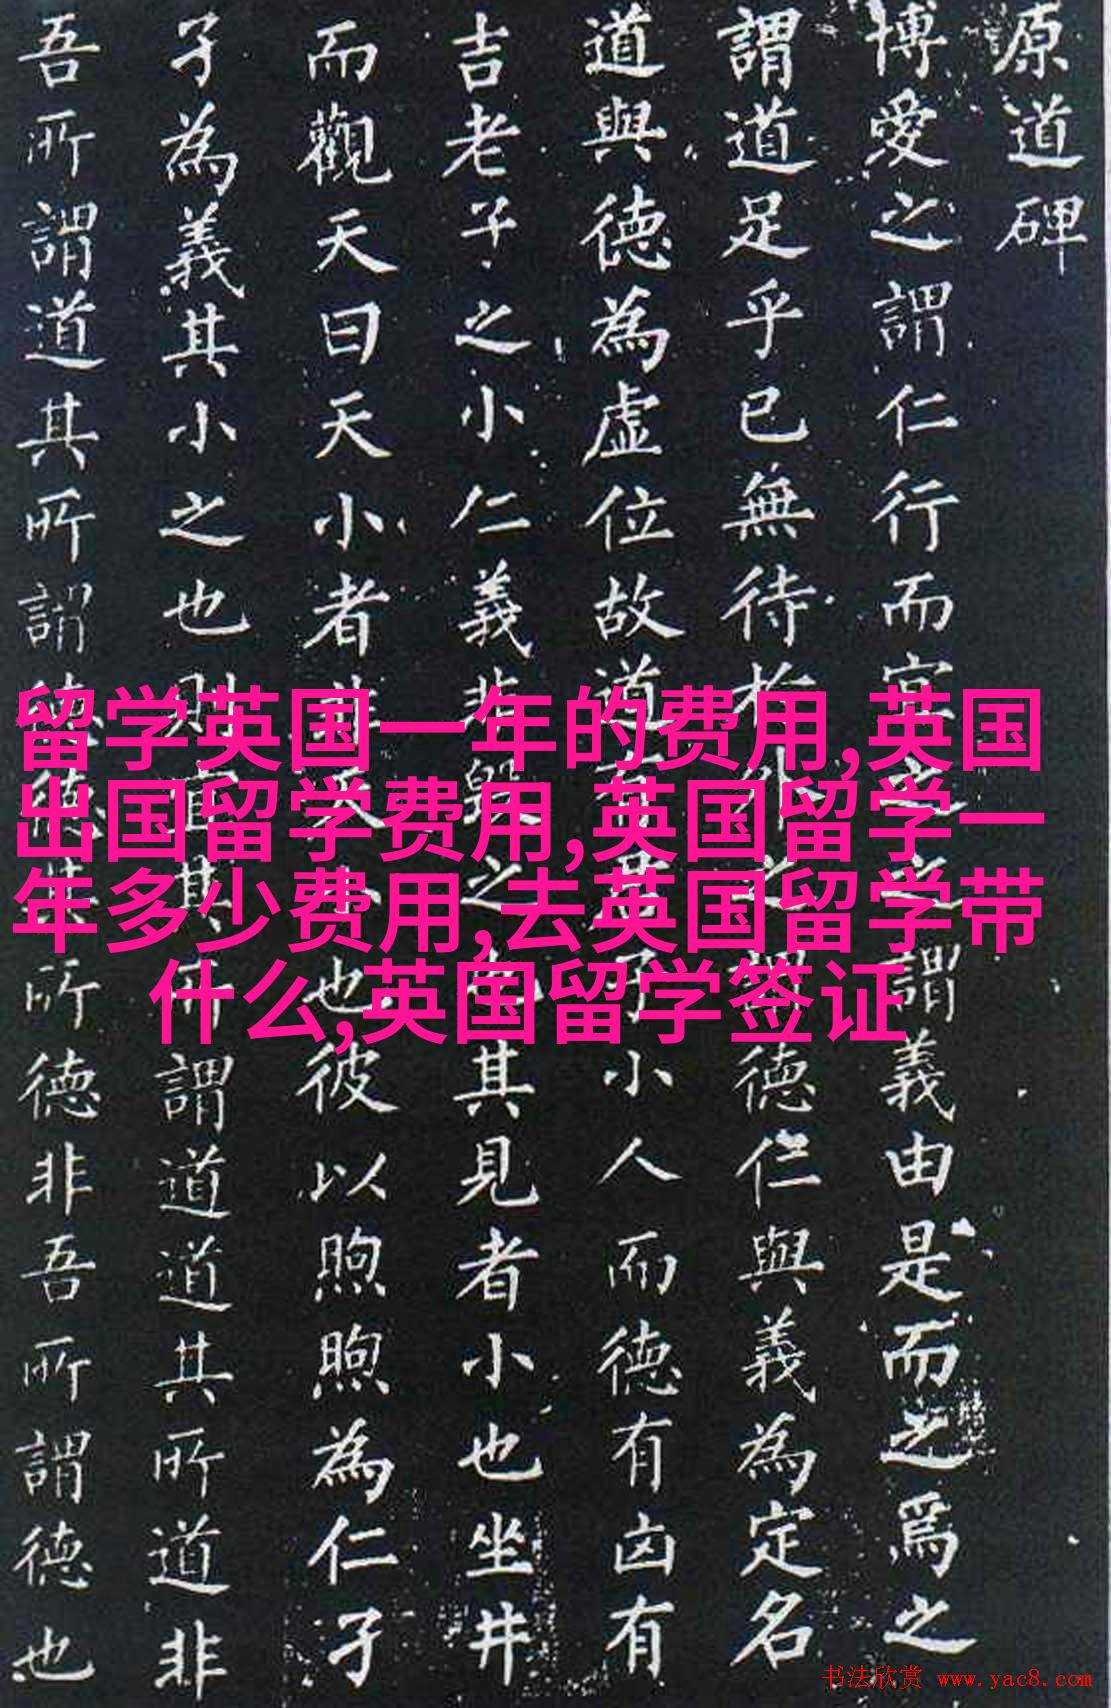 原道碑
博愛之謂仁行而宜之之謂義由是而之爲之
謂道足乎已無待於外之謂德仁與義為定名
道與德為虛位故道有君子小人而德有凶有
吉老子之小仁義非毀之也其見者小也坐井
而觀天曰天小者非天小也彼以煦煦為仁孑
孑為義其小之也則宜其所謂道道其所道非
吾所謂道其所謂德德其所德非吾所謂德也
留学英国一年的费用,英国
出国留学费用,英国留学一
年多少费用,去英国留学带
什么,英国留学签证
书法欣赏 www.yac8.com